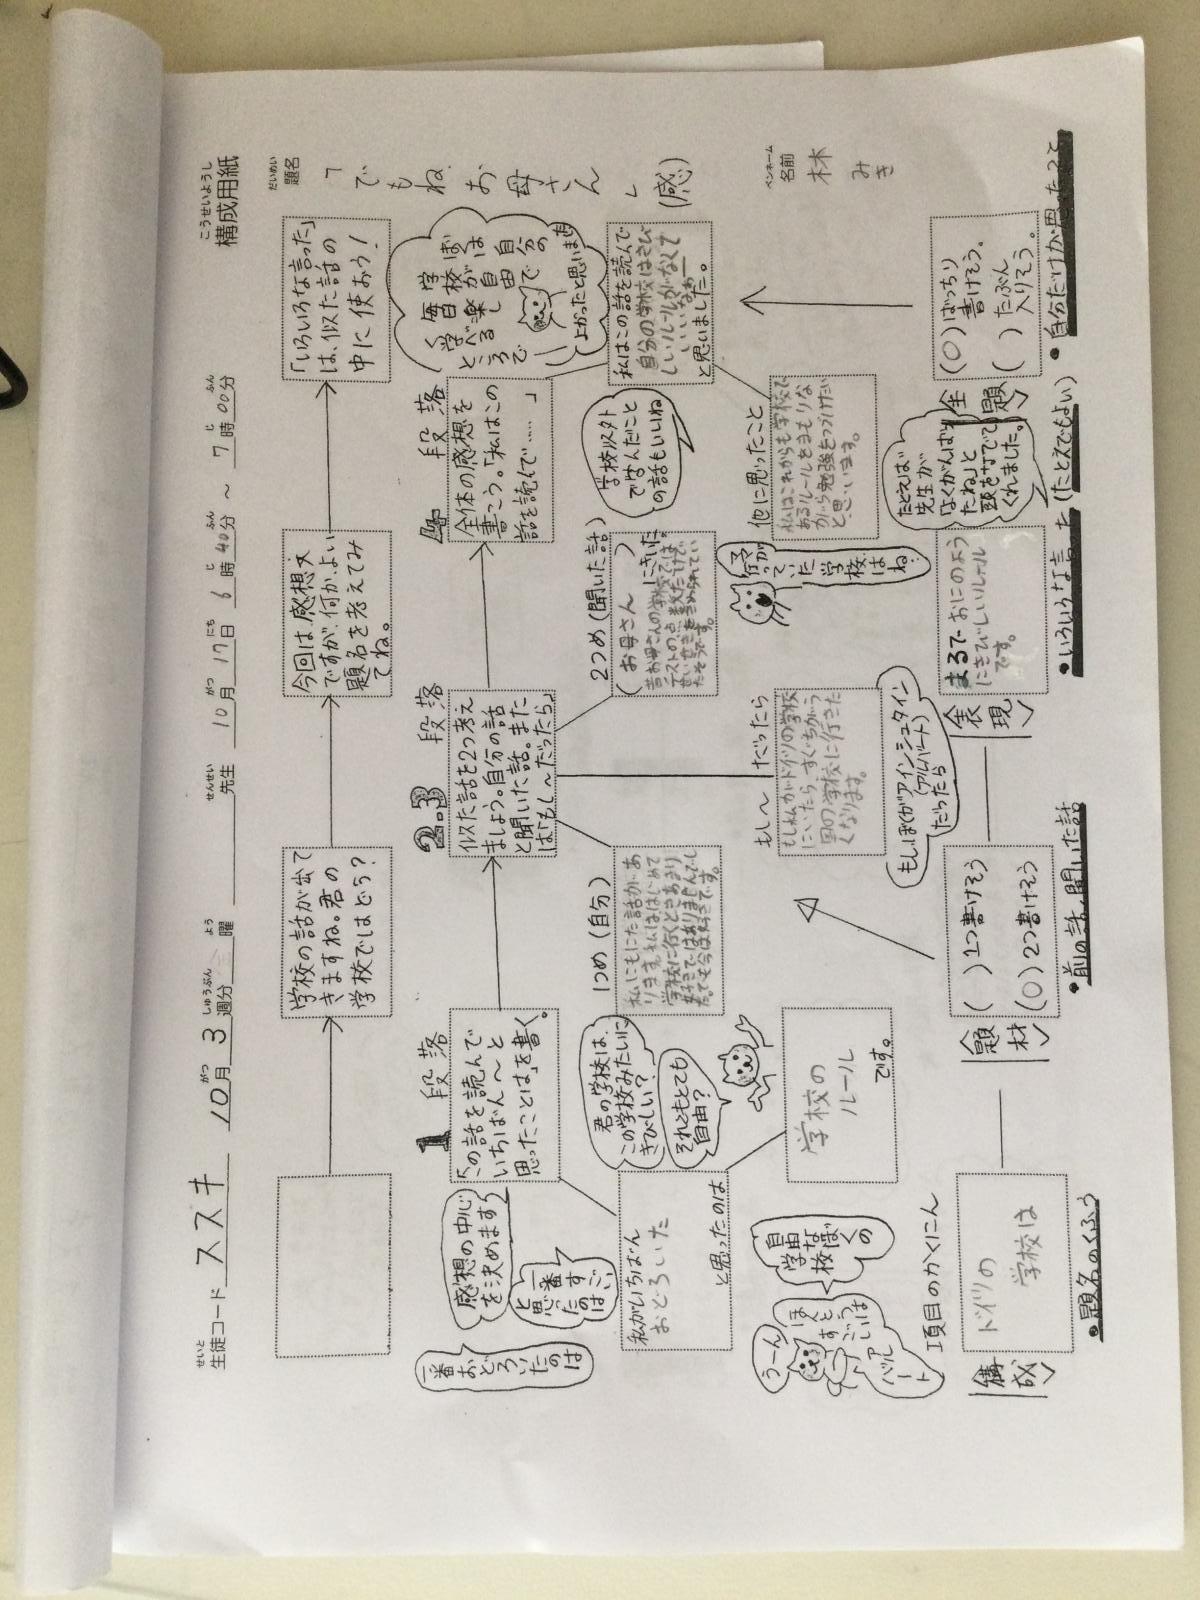 こうせいようし
構成用紙
せいと
生徒コード ススキ
がつ しゅうぶん よう
10月 3週分 曜
せんせい
先生
がつ にち じ ふん じ ふん
10月 17日 6時40分 ～ 7時00分
だいめい
題名
「でもね、お母さん」(感)
ペンネーム
名前
林
みき
学校の話が出て
きますね。君の
学校ではどう?
今回は、感想文
ですが、何か、よい
題名を考えてみ
てね。
「いろいろな言った」
は、似た話の
中に使おう!
1 段落
「この話を読んで
いちばん～と
思ったことは」を書く。
感想の中心
を決めます
一番すごい
と思ったのは
一番おどろいたのは
私がいちばん
おどろいた
と思ったのは
学校の
ルール
です。
君の学校は、
この学校みたいに
きびしい?
それともとても
自由?
2.3 段落
似た話を2つ考え
ましょう。自分の話
と聞いた話。また
は「もし～だったら」
1つめ(自分)
私にもにた話があ
ります。私ははじめて
学校に行くときあまり
好きではありませんでし
た。でも今は好きです。
2つめ(聞いた話)
(お母さん)にきいた。
昔お母さんの学校では、
テストの点数だけで
たそうです。
もし～だったら
もし私がドイツの学校
にいたら、すぐちがう
国の学校に行きた
くなります。
もしぼくがアインシュタイン
(アルバート)
だったら
学校はね、
4 段落
全体の感想を
書こう。「私はこの
話を読んで……」
学校は自由で
毎日が自分の
学べる楽しい
ところで
よかったと思います
私はこの話を読んで
自分の学校はきび
しいルールがなくて
いいなぁー
と思いました。
学校以外
で学んだこと
の話もいいね
他に思ったこと
私はこれからも学校で
あるルールをまもりな
がら勉強をつづけたい
と思います。
うーん
ほんとうに
すごいのは
アルバート
自由な
学校
ぼくの
項目のかくにん
〈構成〉
ドイツの
学校は
・題名のくふう
〈題材〉
( )1つ書けそう
(○)2つ書けそう
・前の話、聞いた話
〈表現〉
まるでおにのよう
にきびしいルール
です。
・いろいろな言った(たとえでもよい)
たとえば
先生が
「よくがんばっ
たね」と
頭をなでて
くれました。
〈主題〉
(○)ばっちり
書けそう。
( )たぶん
入りそう。
・自分だけが思ったこと